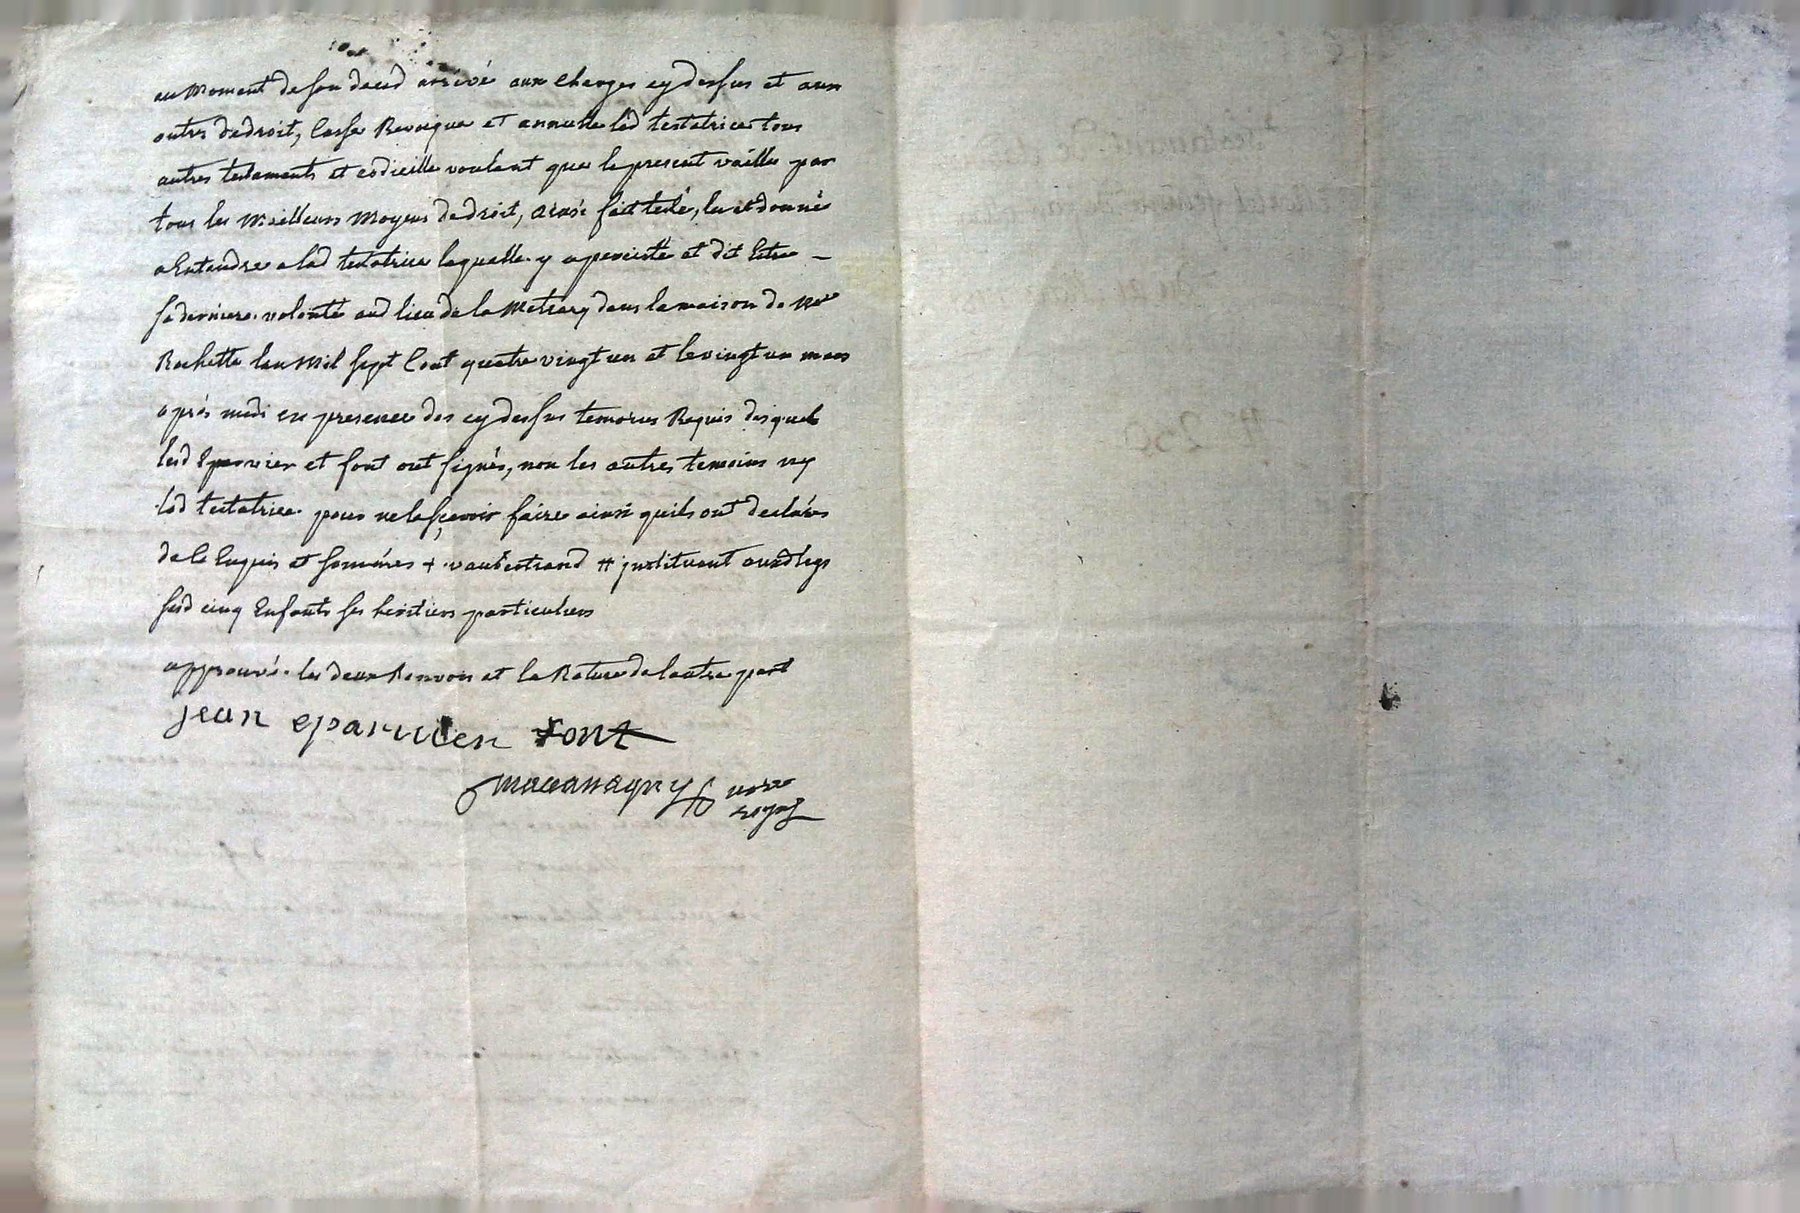 au moment de son deced arrivé aux charges cy dessus et aux
autres de droit, Casse Revoique et annulle lad testatrice tous
autres testaments et codicille voulant que le present vaille par
tous les meilleurs moyens de droit, ainsi fait testé, lu et donné
a Entendre a lad testatrice laquelle y a percisté et dit Estre
sa derniere volonté aud lieu de la Metrary dans la maison de Mre
Rochette lan mil sept Cent quatre vingt un et le vingt un mars
après midi en presence des cy dessus temoins Requis desquels
lesd Eparvier et font ont signés, non les autres temoins ny
lad testatrice pour ne le sçavoir faire ainsi quils ont declarés
de ce Enquis et sommés + vaubertrand # instituant auxd legs
sesd cinq Enfants ses heritiers particuliers
approuvé les deux Renvois et la Rature de lautre part
jean eparvier font
nore
royal
N° 250